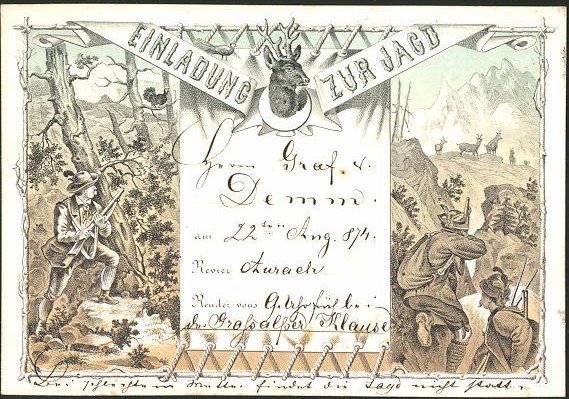 EINLADUNG ZUR JAGD
Herrn Graf v.
Demm.
am 22ten Aug. 874.
Revier Aurach
Rendez-vous 9 Uhr früh bei
der Großalper Klause
Bei schlechtem Wetter findet die Jagd nicht statt.